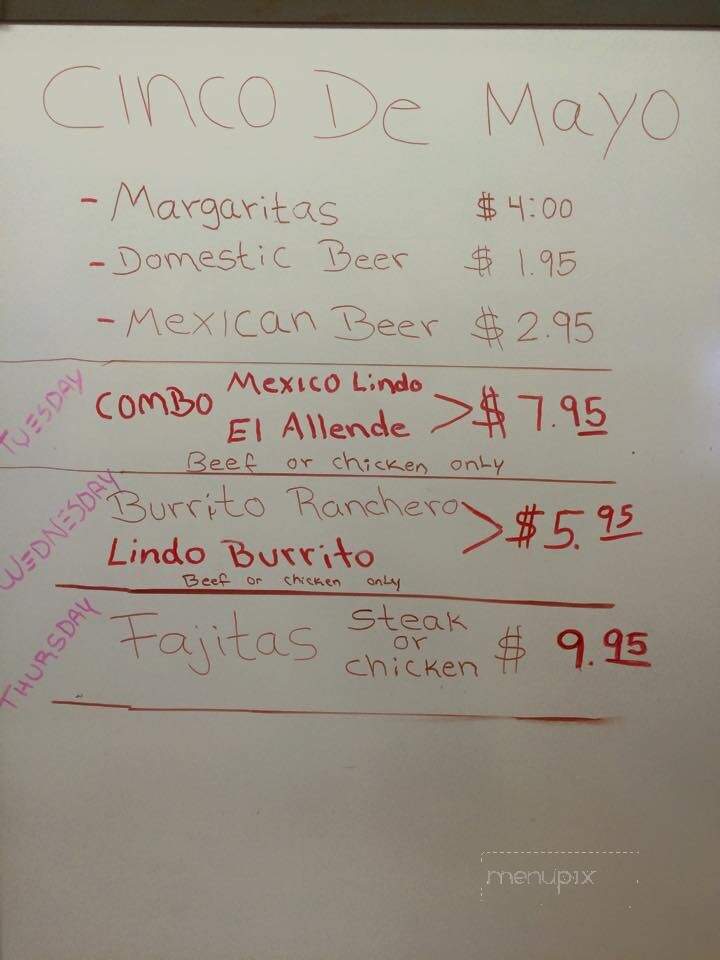 Cinco De Mayo
- Margaritas $ 4:00
- Domestic Beer $ 1.95
- Mexican Beer $ 2.95
TUESDAY
COMBO Mexico Lindo
El Allende > $ 7.95
Beef or chicken only
WEDNESDAY
Burrito Ranchero
Lindo Burrito > $5.95
Beef or chicken only
THURSDAY
Fajitas steak or chicken $ 9.95
menupix